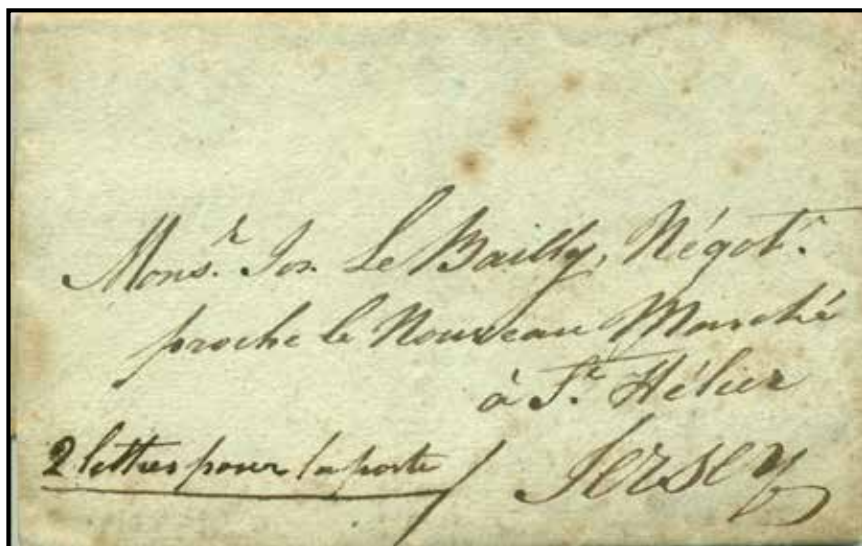 Mons.r Jos. Le Bailly, Négot.r
proche le Nouveau Marché
à St. Hélier
2 lettres pour la poste / Jersey